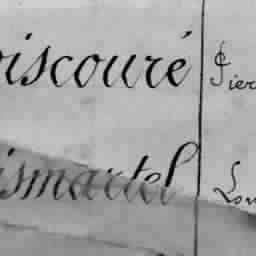 iscouré Pier
ismartel Lou